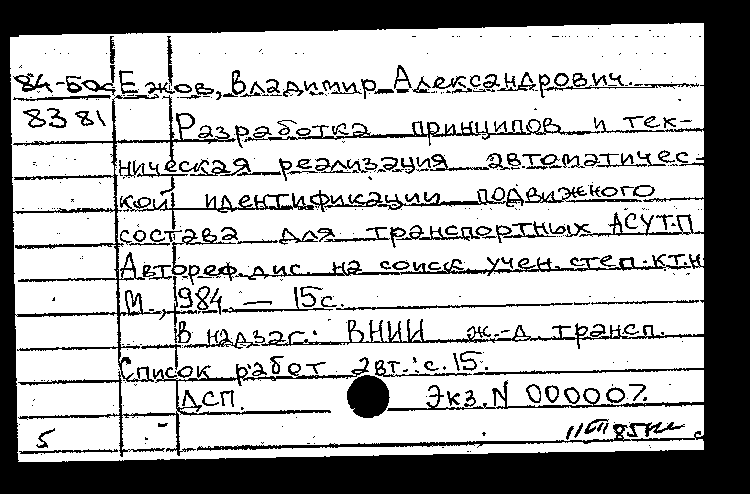 84-50с Ежов, Владимир Александрович.
8381 Разработка принципов и тех-
ническая реализация автоматичес-
кой идентификации подвижного
состава для транспортных АСУТП
Автореф. дис. на соиск. учен. степ. к.т.н
М., 984. — 15с.
В надзаг.: ВНИИ ж.-д. трансп.
Список работ авт.: с. 15.
ДСП. Экз. N 000007.
5